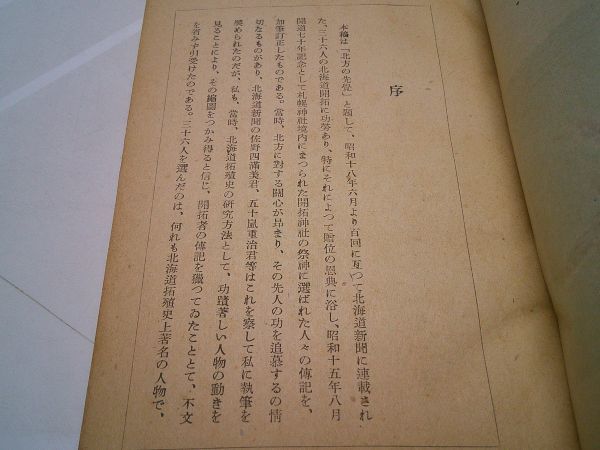 序
本稿は「北方の先覺」と題して、昭和十八年六月より百回に亙つて北海道新聞に連載され
た、三十六人の北海道開拓に功勞あり、特にそれによつて贈位の恩典に浴し、昭和十五年八月
開道七十年記念として札幌神社境内にまつられた開拓神社の祭神に選ばれた人々の傳記を、
加筆訂正したものである。當時、北方に對する關心が昂まり、その先人の功を追慕するの情
切なるものがあり、北海道新聞の佐野四滿美君、五十嵐重治君等はこれを察して私に執筆を
奬められたのだが、私も、當時、北海道拓殖史の研究方法として、功蹟著しい人物の動きを
見ることにより、その縮圖をつかみ得ると信じ、開拓者の傳記を獵つてゐたこととて、不文
を省みず引受けたのである。三十六人を選んだのは、何れも北海道拓殖史上著名の人物で、